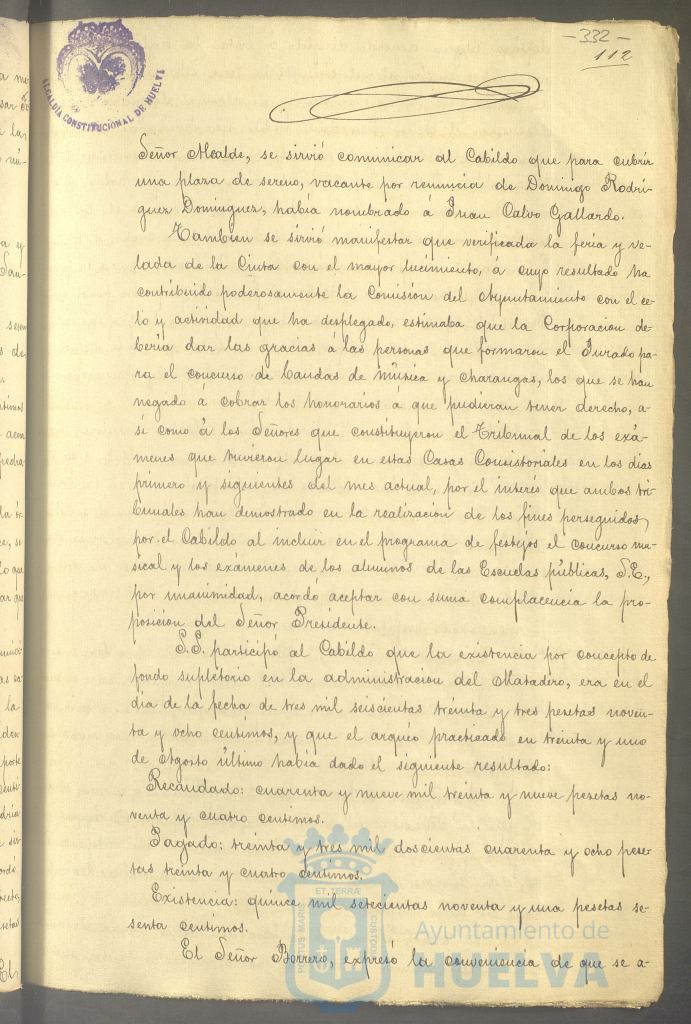 -332-
112
ALCALDÍA CONSTITUCIONAL DE HUELVA
Señor Alcalde, se sirvió comunicar al Cabildo que para cubrir
una plaza de sereno, vacante por renuncia de Domingo Rodri-
guez Dominguez, había nombrado á Juan Calvo Gallardo.
Tambien se sirvió manifestar que verificada la feria y ve-
lada de la Cinta con el mayor lucimiento, á cuyo resultado ha
contribuido poderosamente la Comisión del Ayuntamiento con el ce-
lo y actividad que ha desplegado, estimaba que la Corporacion de-
bería dar las gracias á las personas que formaron el Jurado pa-
ra el concurso de bandas de música y charangas, los que se han
negado á cobrar los honorarios a que pudieran tener derecho, a-
sí como á los Señores que constituyeron el Tribunal de los exá-
menes que tuvieron lugar en estas Casas Consistoriales en los dias
primero y siguientes del mes actual, por el interés que ambos tri-
bunales han demostrado en la realizacion de los fines perseguidos
por el Cabildo al incluir en el programa de festejos el concurso mu-
sical y los exámenes de los alumnos de las Escuelas públicas, S.E.,
por unanimidad, acordó aceptar con suma complacencia la pro-
posición del Señor Presidente.
S.S. participó al Cabildo que la existencia por concepto de
fondo supletorio en la administracion del Matadero, era en el
dia de la fecha de tres mil seiscientas treinta y tres pesetas noven-
ta y ocho centimos, y que el arquéo practicado en treinta y uno
de Agosto último había dado el siguiente resultado:
Recaudado: cuarenta y nueve mil treinta y nueve pesetas no-
venta y cuatro centimos.
Pagado: treinta y tres mil doscientas cuarenta y ocho pese-
tas treinta y cuatro centimos.
Existencia: quince mil setecientas noventa y una pesetas se-
senta centimos.
El Señor Borrero, expresó la conveniencia de que se a-
PORTUS MARIS
ET TERRÆ
CUSTODIA
Ayuntamiento de
HUELVA